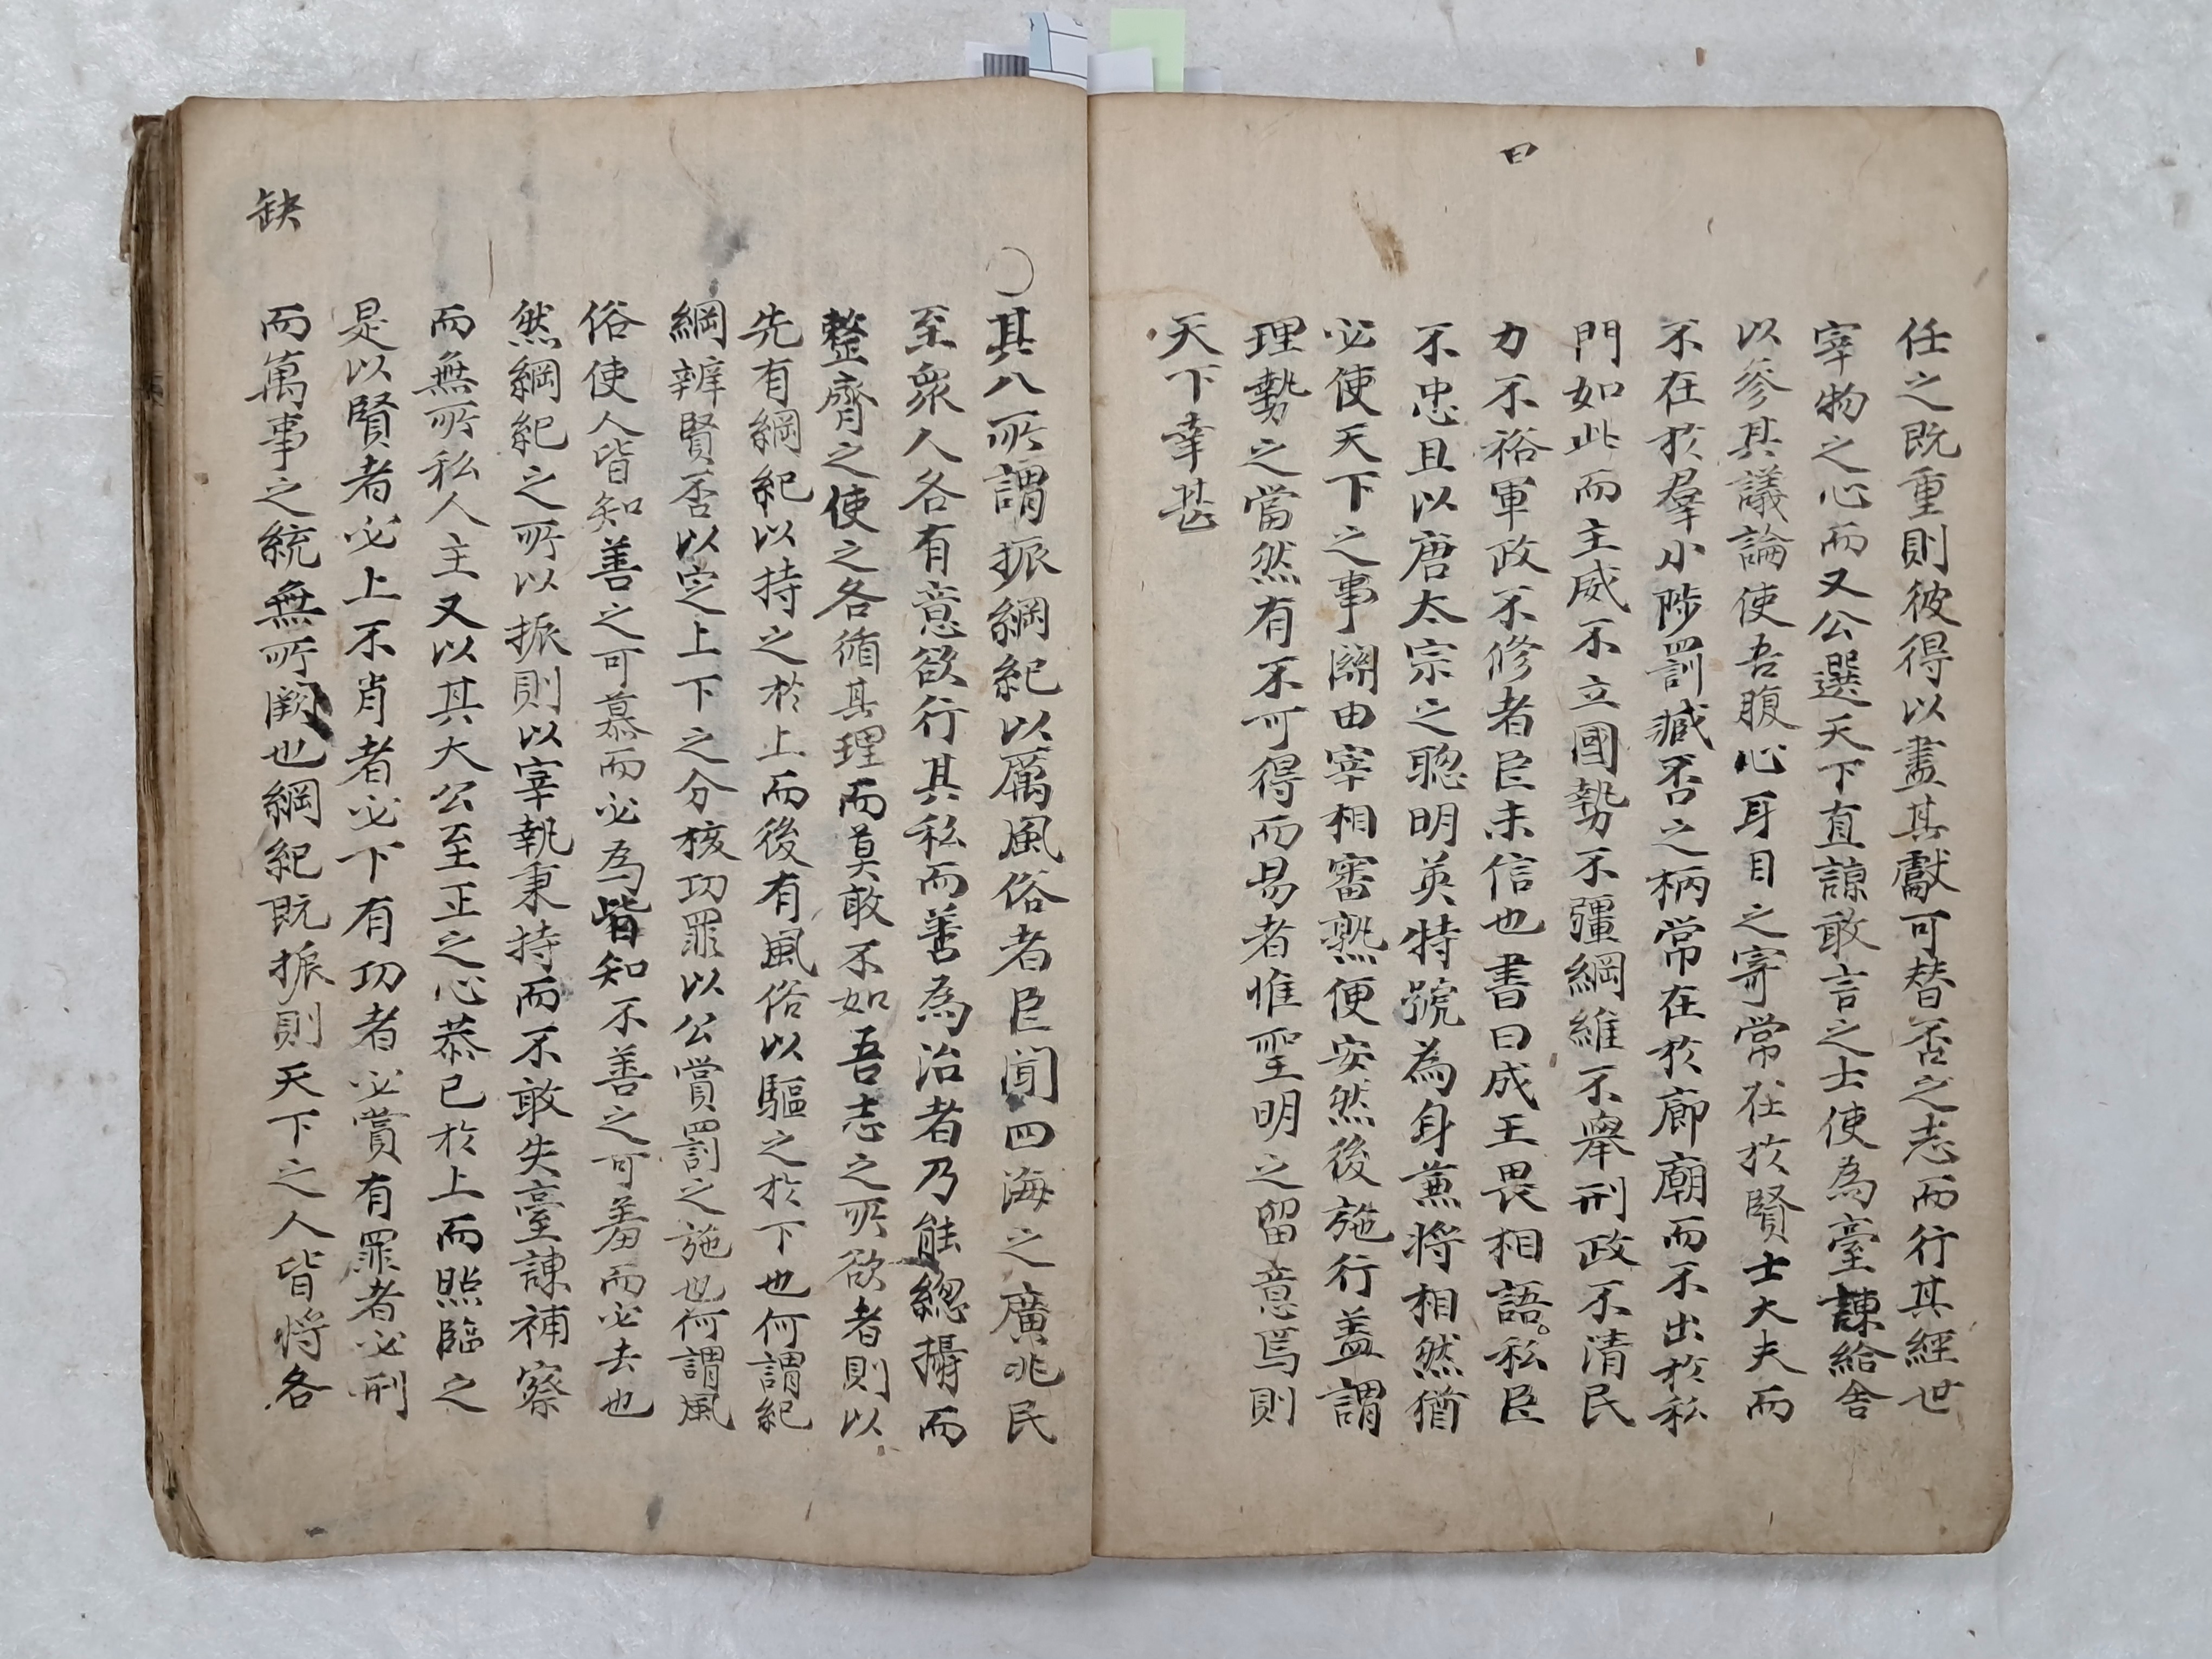 任之既重則彼得以盡其獻可替否之志而行其經世
宰物之心而又公選天下直諒敢言之士使為臺諫給舍
以參其議論使吾腹心耳目之寄常在於賢士大夫而
不在於羣小陟罰臧否之柄常在於廊廟而不出於私
門如此而主威不立國勢不彊綱維不舉刑政不清民
力不裕軍政不修者臣未信也書曰成王畏相語。私臣
曰
不忠且以唐太宗之聰明英特號為身兼將相然猶
必使天下之事關由宰相審熟便安然後施行盖謂
理勢之當然有不可得而易者惟聖明之留意焉則
天下幸甚
○其八所謂振綱紀以厲風俗者臣聞四海之廣兆民
至衆人各有意欲行其私而善為治者乃能總攝而
整齊之使之各循其理而莫敢不如吾志之所欲者則以
先有綱紀以持之於上而後有風俗以驅之於下也何謂紀
綱辨賢否以定上下之分核功罪以公賞罰之施也何謂風
俗使人皆知善之可慕而必為皆知不善之可羞而必去也
然綱紀之所以振則以宰執秉持而不敢失臺諫補察
而無所私人主又以其大公至正之心恭已於上而照臨之
是以賢者必上不肖者必下有功者必賞有罪者必刑
而萬事之統無所闕也綱紀既振則天下之人皆將各
缺